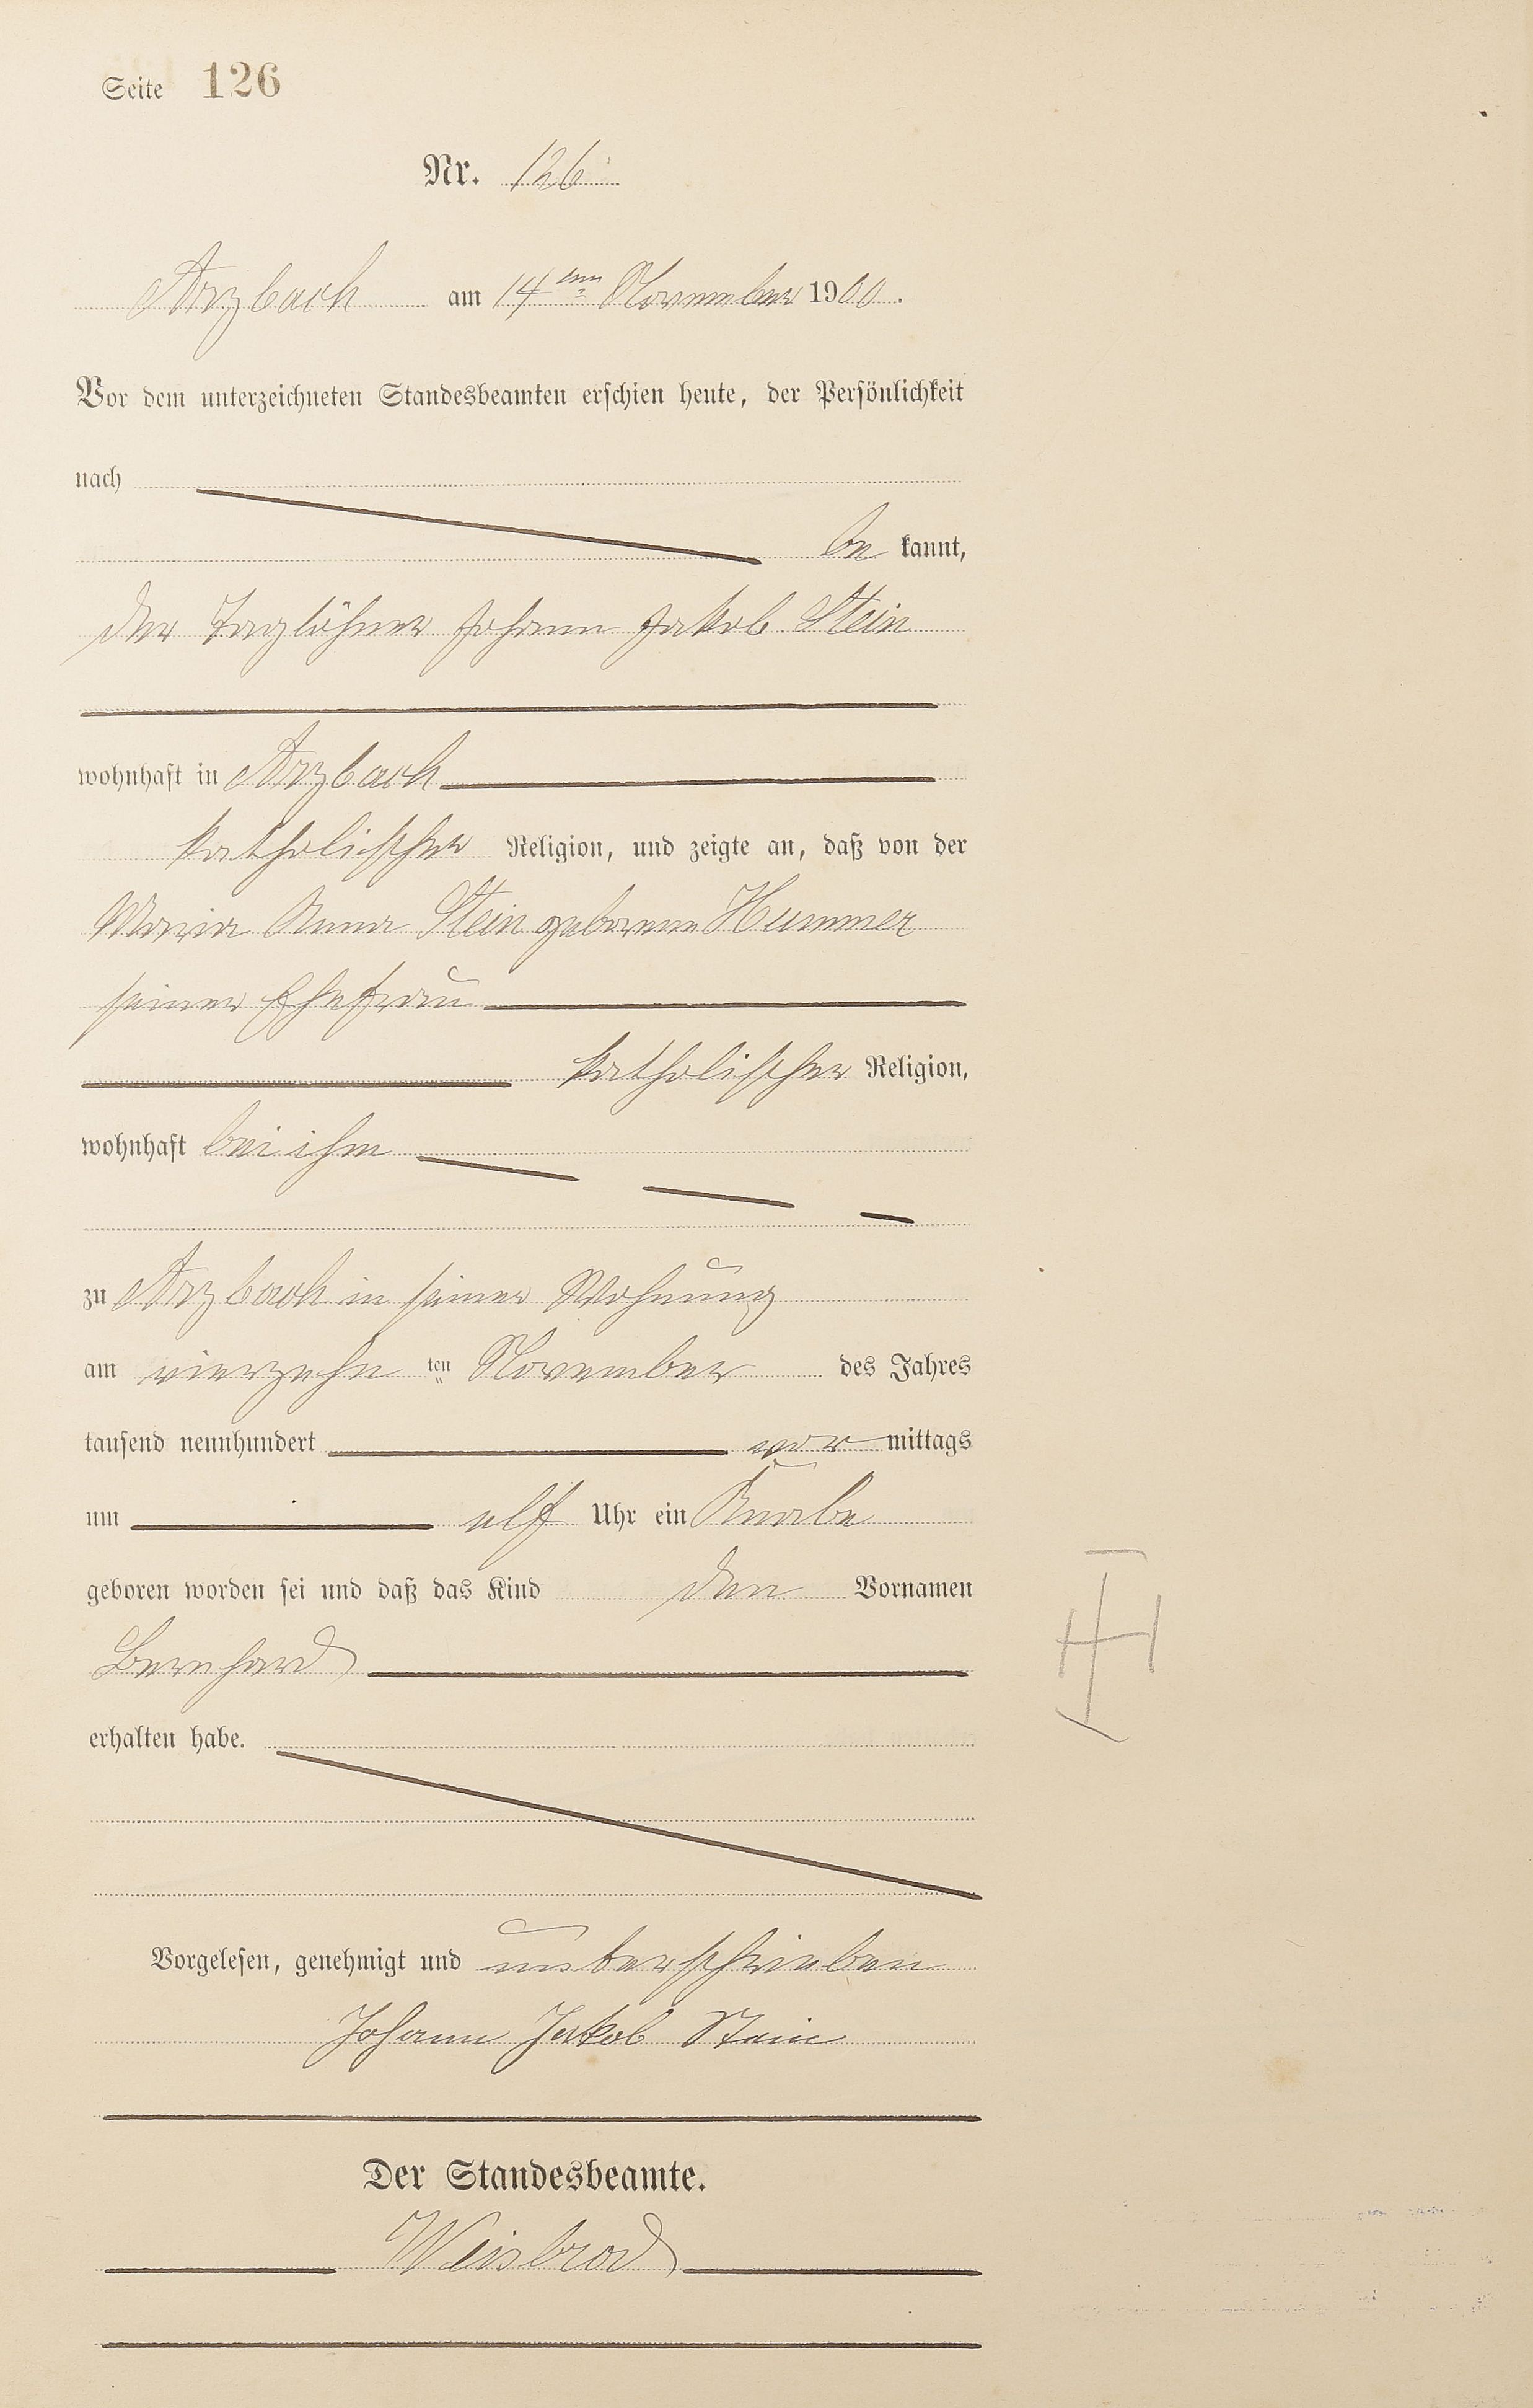 Seite 126
Nr. 126
Arzbach am 14ten November 1900.
Vor dem unterzeichneten Standesbeamten erschien heute, der Persönlichkeit
nach
be kannt,
der Taglöhner Johann Jakob Stein
wohnhaft in Arzbach
katholischer Religion, und zeigte an, daß von der
Maria Anna Stein geborene Hummer
seiner Ehefrau
katholischer Religion,
wohnhaft bei ihm
zu Arzbach in seiner Wohnung
am vierzehn ten November des Jahres
tausend neunhundert vor mittags
um elf Uhr ein Knabe
geboren worden sei und daß das Kind den Vornamen
Bernhard
erhalten habe.
Vorgelesen, genehmigt und unterschrieben
Johann Jakob Stein
Der Standesbeamte.
Weisbrod